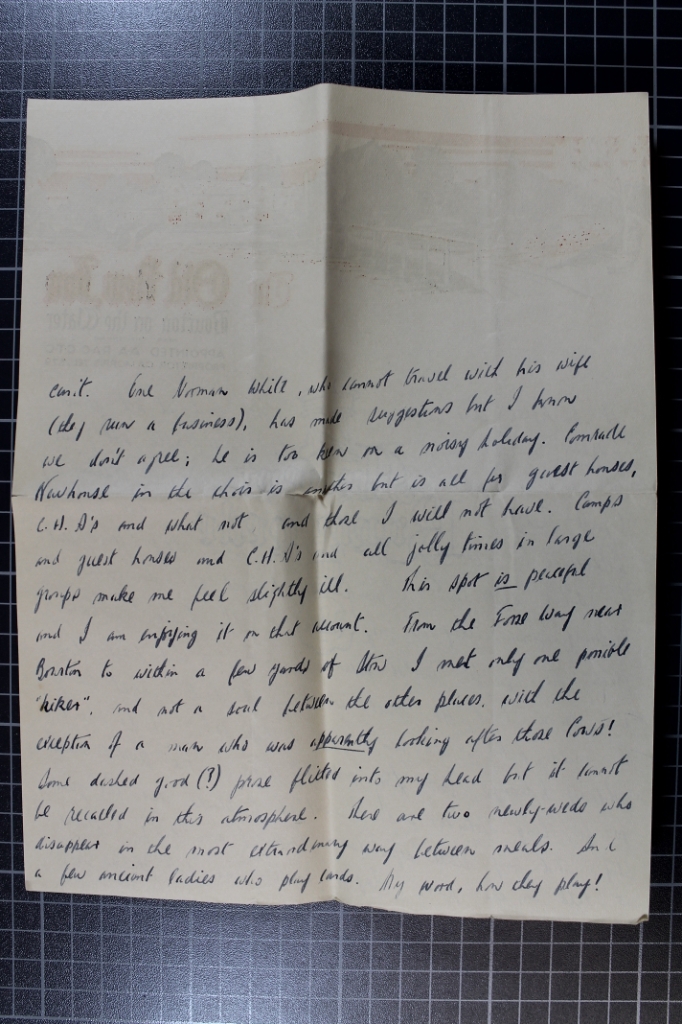 can't. One Norman White, who cannot travel with his wife
(they run a business), has made suggestions but I know
we don't agree; he is too keen on a noisy holiday. Comrade
Newhouse in the choir is another but is all for guest houses,
C.H.A's and what not and those I will not have. Camps
and guest houses and C.H.A's and all jolly times in large
groups make me feel slightly ill. This spot is peaceful
and I am enjoying it on that account. From the Fosse Way near
Bourton to within a few yards of Stow I met only one possible
"hiker", and not a soul between the other places, with the
exception of a man who was apparently looking after those Cows!
Some dashed good (?) prose flitted into my head but it cannot
be recalled in this atmosphere. There are two newly-weds who
disappear in the most extraordinary way between meals. And
a few ancient ladies who play cards. My word, how they play!